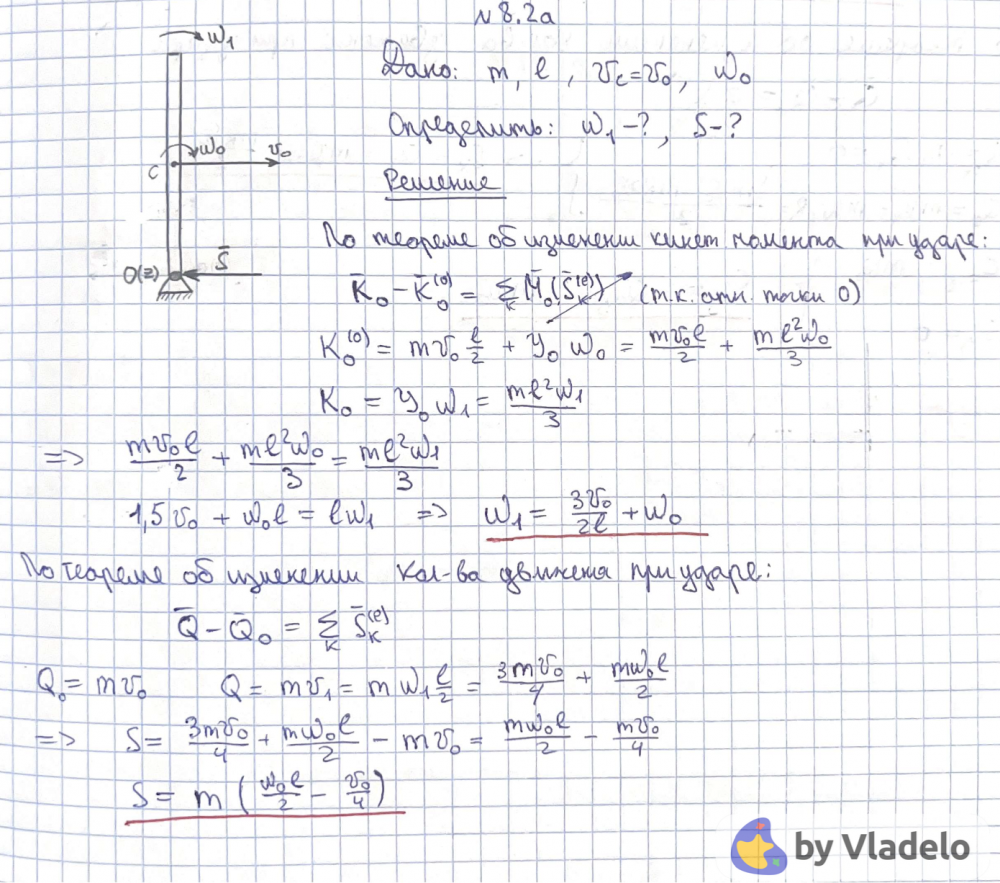 N 8.2a
ω₁
Дано: m, l, v_c = v₀, ω₀
Определить: ω₁ - ?, S - ?
ω₀ v₀
C
Решение
По теореме об изменении кинет момента при ударе:
O(z) S̄
K̄₀ - K̄₀⁽⁰⁾ = Σ_k M̄₀(S̄_k⁽ᵉ⁾) (т.к. отн. точки O)
K₀⁽⁰⁾ = mv₀ l/2 + y₀ ω₀ = mv₀l/2 + ml²ω₀/3
K₀ = y₀ ω₁ = ml²ω₁/3
=> mv₀l/2 + ml²ω₀/3 = ml²ω₁/3
1,5v₀ + ω₀l = lω₁ => ω₁ = 3v₀/2l + ω₀
По теореме об изменении кол-ва движения при ударе:
Q̄ - Q̄₀ = Σ_k S̄_k⁽ᵉ⁾
Q₀ = mv₀ Q = mv₁ = mω₁ l/2 = 3mv₀/4 + mω₀l/2
=> S = 3mv₀/4 + mω₀l/2 - mv₀ = mω₀l/2 - mv₀/4
S = m (ω₀l/2 - v₀/4)
by Vladelo